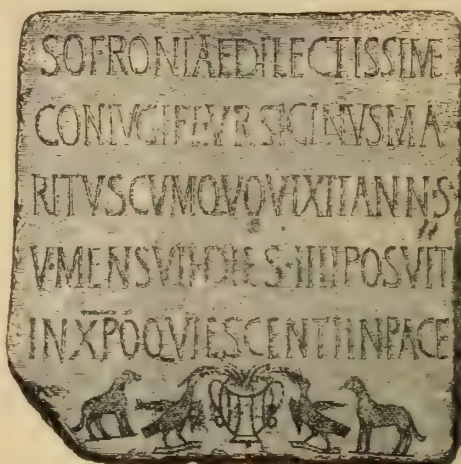 SOFRONIAEDILECTISSIME
CONIVGIFLVRSICINVSMA
RITVSCVMQVOVIXITANN·S
V·MENS DIES·IIII POSVIT
INXP̅OQVIESCENTIINPACE